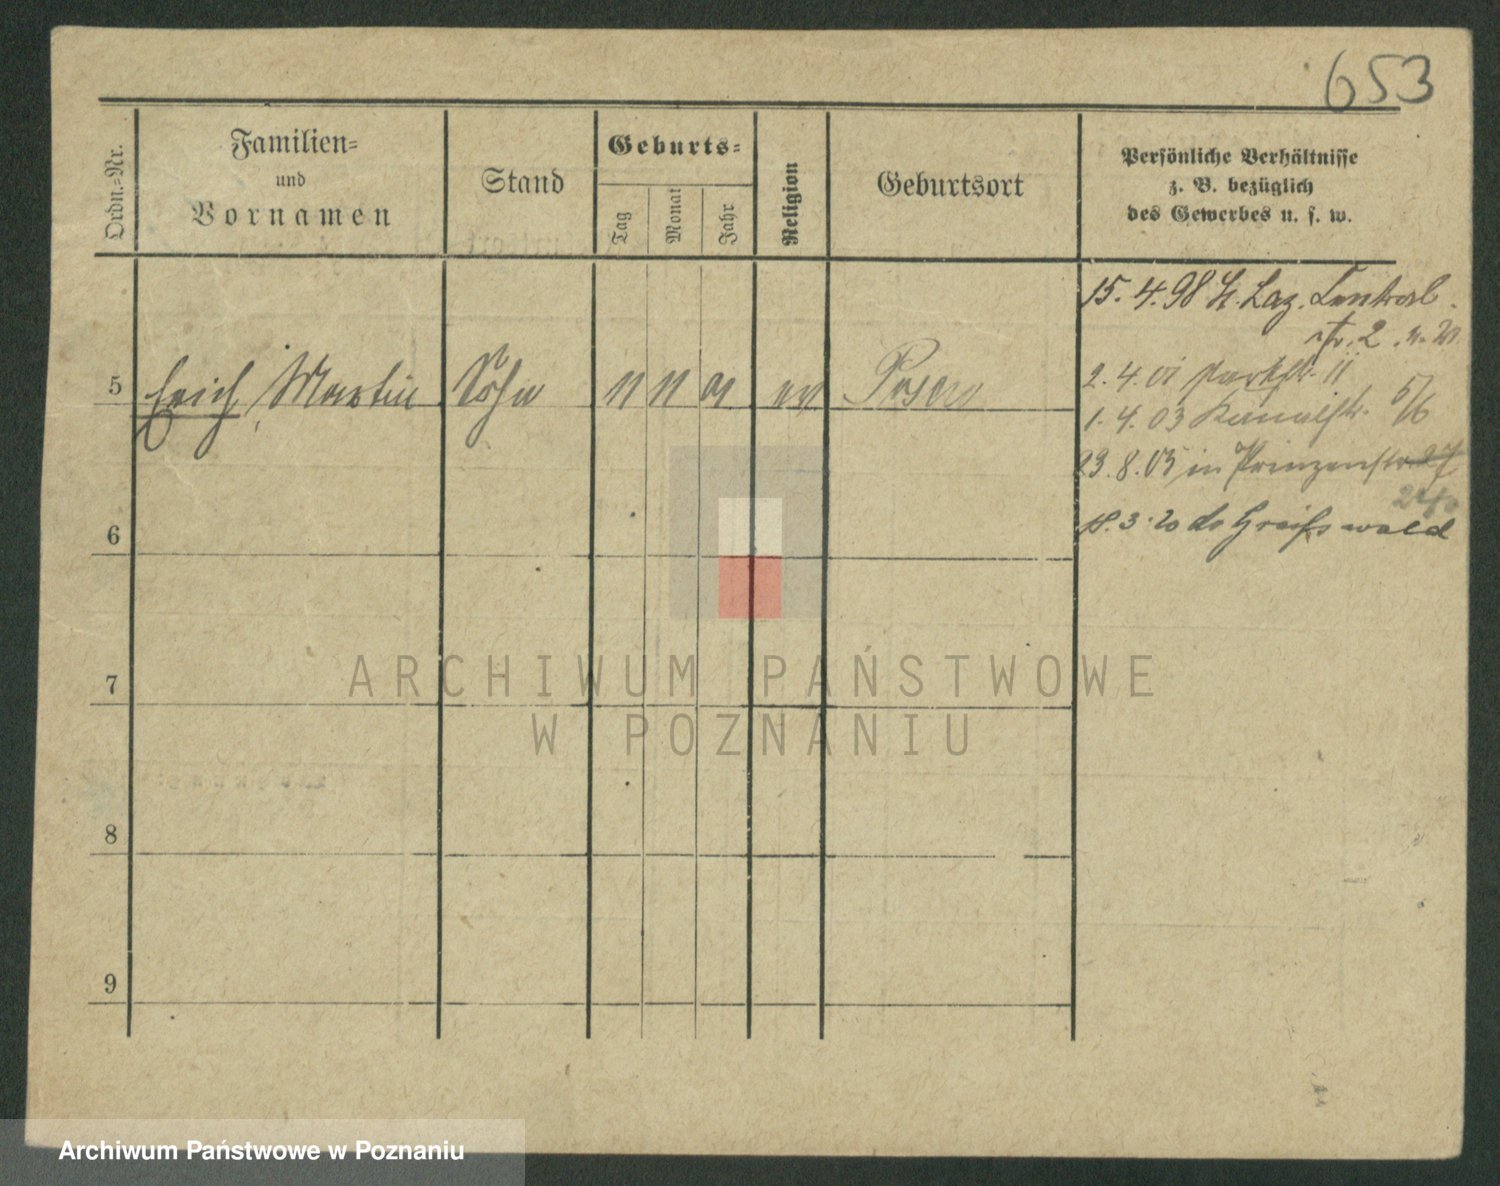 653
Ordn.=Nr.
Familien=
und
Vornamen
Stand
Geburts=
Tag
Monat
Jahr
Religion
Geburtsort
Persönliche Verhältnisse
z. B. bezüglich
des Gewerbes u. s. w.
15. 4. 98 St. Laz.
str. 2
5
Erich, Martin
Sohn
11
11
01
ev
Posen
2. 4. 01 Parkstr. 11
1. 4. 03 Kanalstr. 5/6
23. 8. 05 in Prinzenstr. 27
24
18. 3. 20 do Greifswald
6
7
8
9
ARCHIWUM PAŃSTWOWE
W POZNANIU
Archiwum Państwowe w Poznaniu